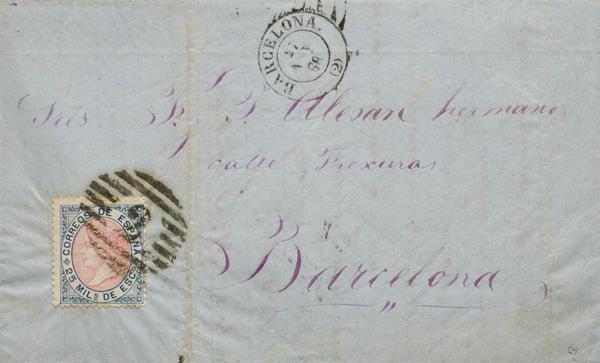 BARCELONA.
BARCELONA
(2)
Sres. Alesan hermanos
calle Frexuras
Barcelona
"
CORREOS DE ESPAÑA
25 MILS DE ESCO